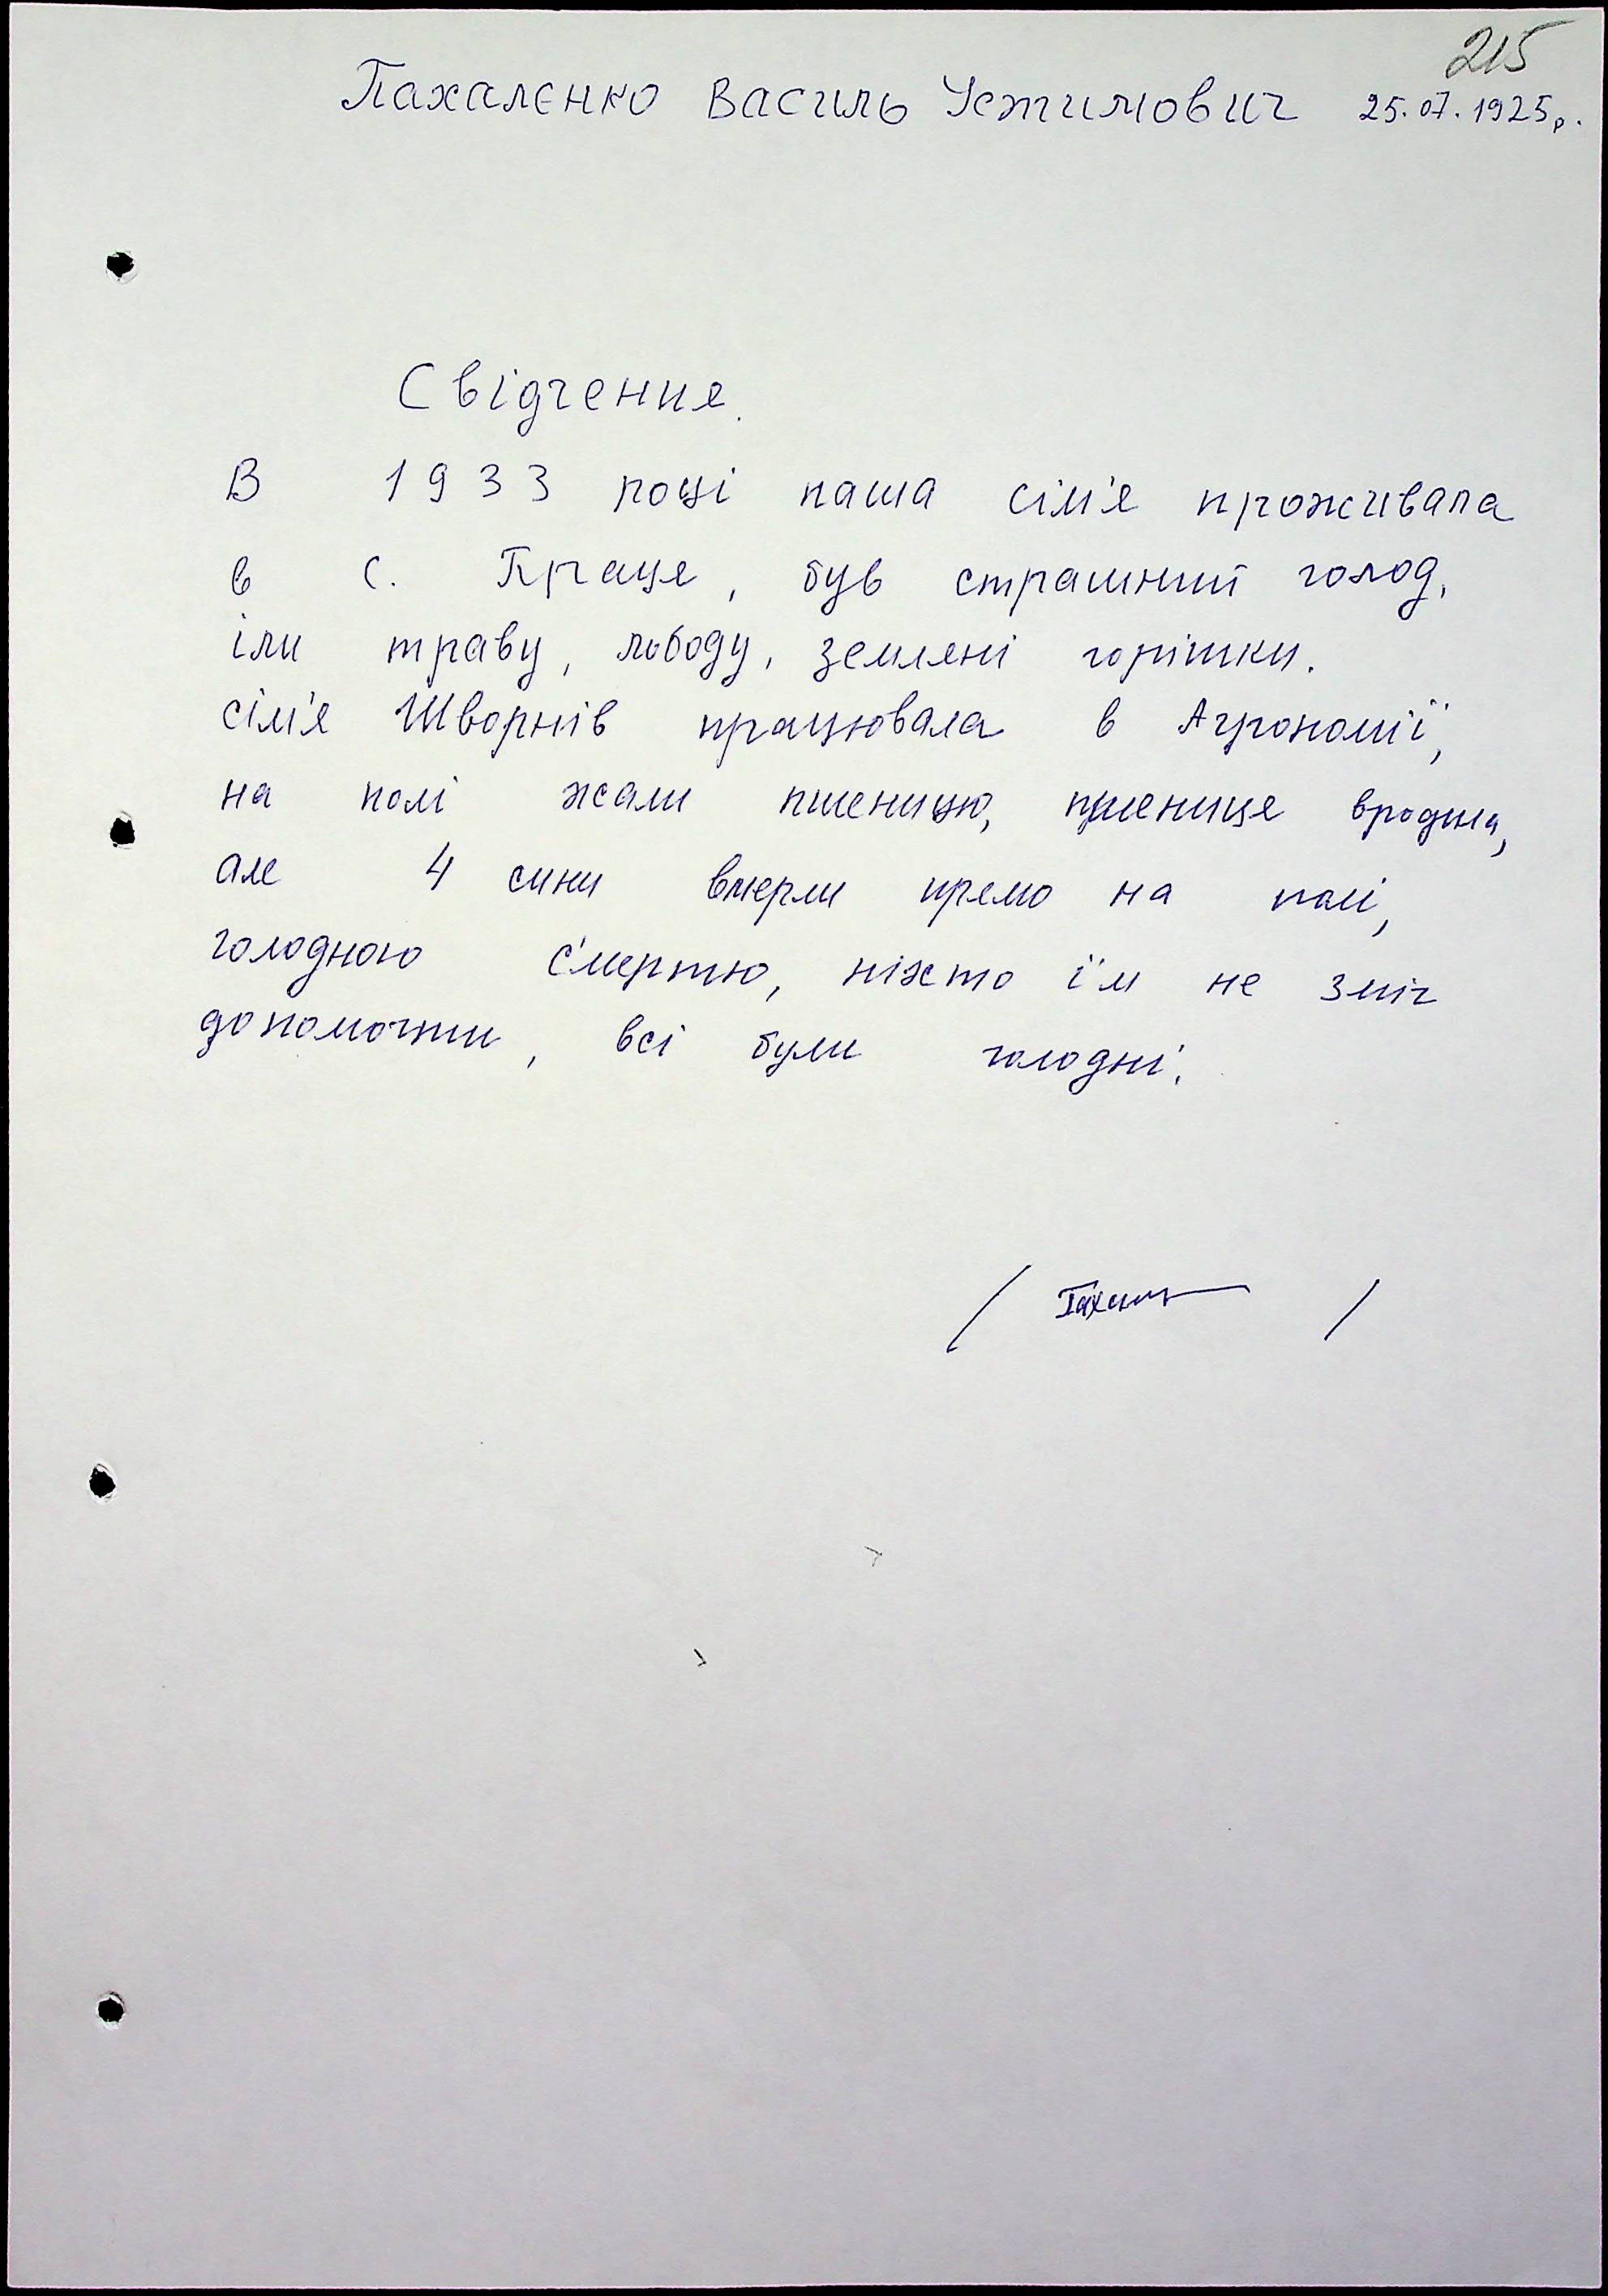 215
Пахалєнко Василь Устимович 25.07.1925р.
Свідчення.
В 1933 році наша сім'я проживала
в с. Праця, був страшний голод,
їли траву, лободу, земляні горішки.
сім'я Шворнів працювала в Агрономії,
на полі жали пшеницю, пшениця вродила,
але 4 сини вмерли прямо на полі,
голодною с'мертю, ніхто їм не зміг
допомогти, всі були голодні.
/ /